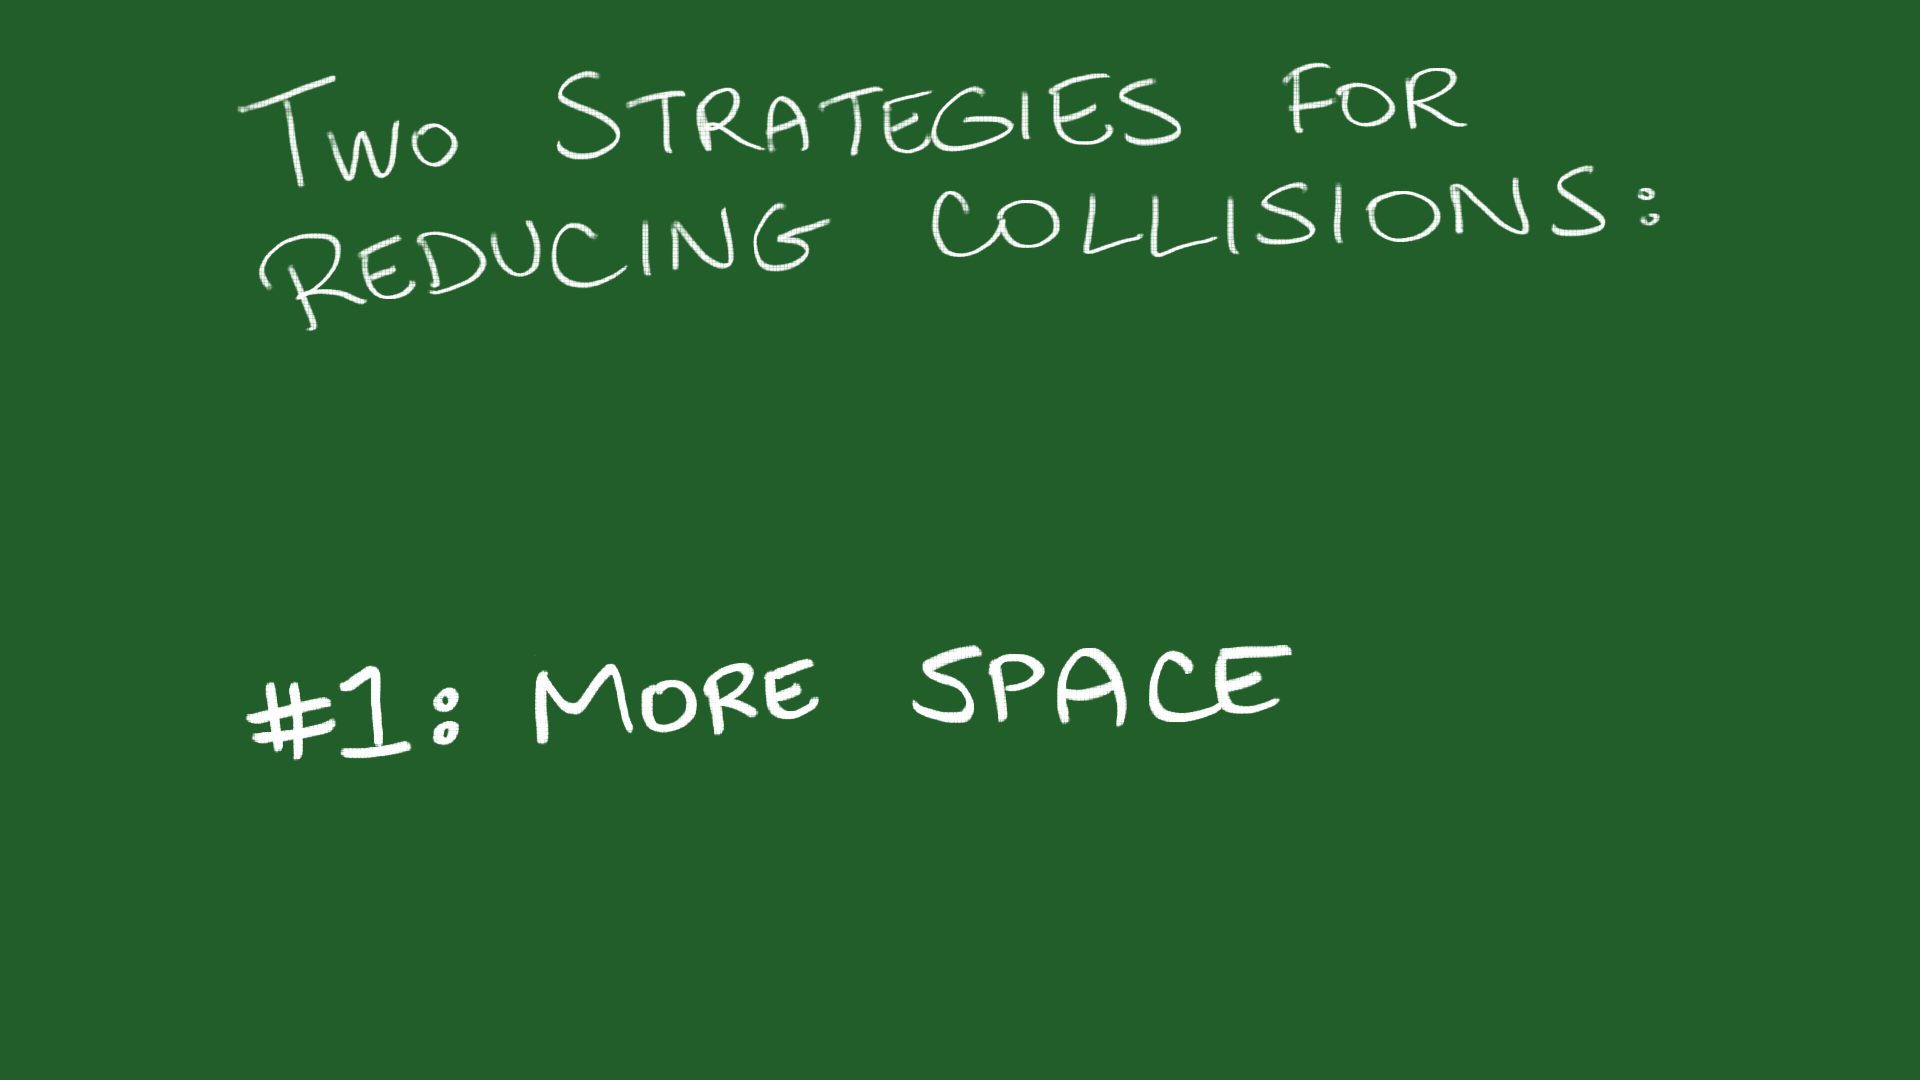 TWO STRATEGIES FOR
REDUCING COLLISIONS:
#1: MORE SPACE